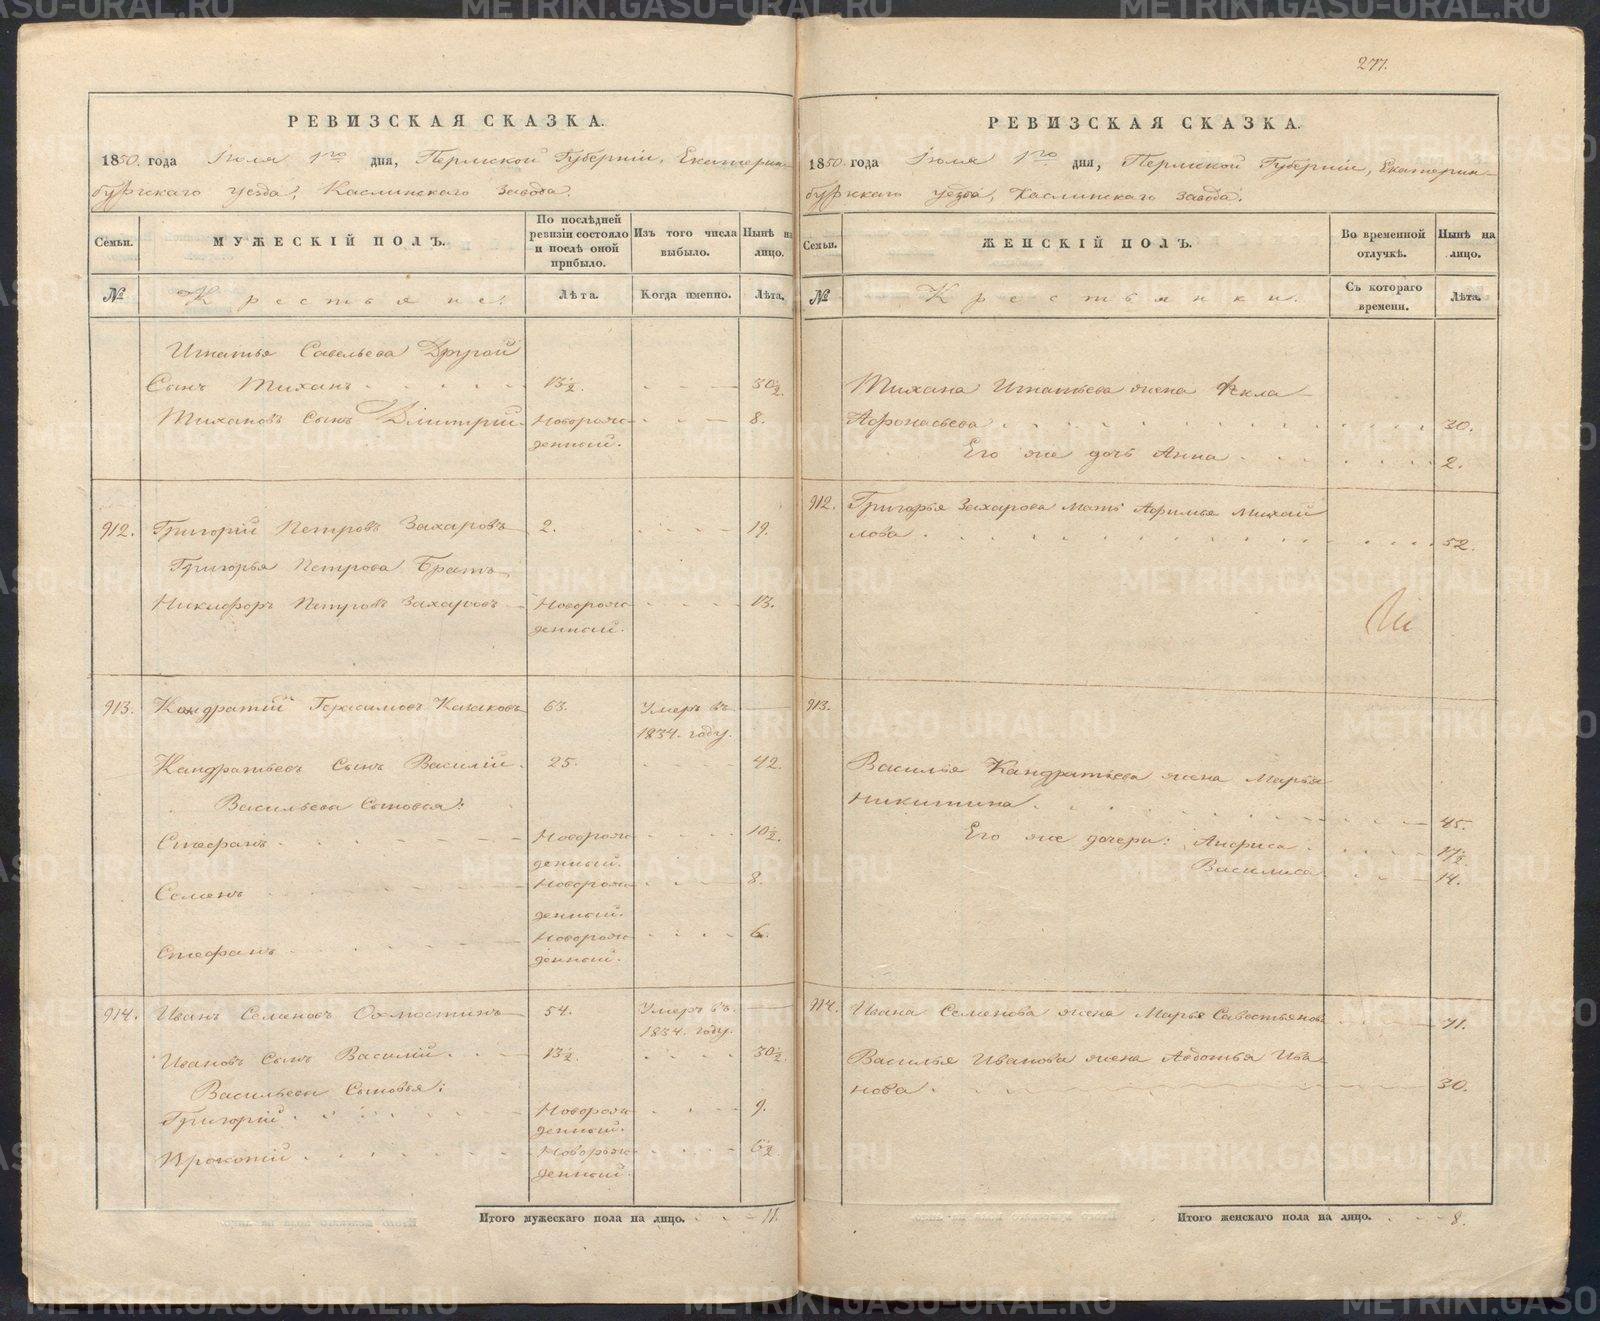 277.
РЕВИЗСКАЯ СКАЗКА.
1850. года Іюля 1го дня, Пермской Губерніи, Екатерин-
бургскаго уезда, Каслинскаго завода.
Семьи.
МУЖЕСКІЙ ПОЛЪ.
По послѣдней ревизіи состояло и послѣ оной прибыло.
Изъ того числа выбыло.
Нынѣ на лицо.
№
Крестьяне.
Лѣта.
Когда именно.
Лѣта.
Игнатья Савельева Другой
Сынъ Тиханъ 13½ 30½
Тихановъ сынъ Дмитрій Новорож- 8.
денный.
912. Григорій Петровъ Захаровъ 2. 19.
Григорья Петрова Братъ
Никифоръ Петровъ Захаровъ Новорож- 13.
денный.
913. Кандратій Герасимовъ Казаковъ 63. Умеръ въ
1834. году.
Кандратьевъ сынъ Василій 25. 42.
Васильева Сыновья:
Стефанъ Новорож- 10½.
денный.
Семенъ Новорож- 8.
денный.
Стефанъ Новорож- 6.
денный.
914. Иванъ Семеновъ Охмостинъ 54. Умеръ въ
1834. году.
Ивановъ Сынъ Василій 13½ 30½
Васильева Сыновья:
Григорій Новорож- 9.
денный.
Прокопій Новорож- 6½
денный.
Итого мужескаго пола на лицо. 11.
РЕВИЗСКАЯ СКАЗКА.
1850. года Іюля 1го дня, Пермской Губерніи, Екатерин-
бургскаго уезда, Каслинскаго завода.
Семьи.
ЖЕНСКІЙ ПОЛЪ.
Во временной отлучкѣ.
Нынѣ на лицо.
№
Крестьянки.
Съ котораго времени.
Лѣта.
Тихана Игнатьева жена Фекла
Афонасьева 30.
Его же дочь Анна 2.
912. Григорья Захарова мать Афимья Михай
лова 52.
913.
Василья Кандратьева жена Марья
Никитина 45.
Его же дочери: Анфиса 17½.
Василиса 14.
914. Ивана Семенова жена Марья Савостьянова 71.
Василья Иванова жена Авдотья Ива
нова 30.
Итого женскаго пола на лицо. 8.
METRIKI.GASO-URAL.RU